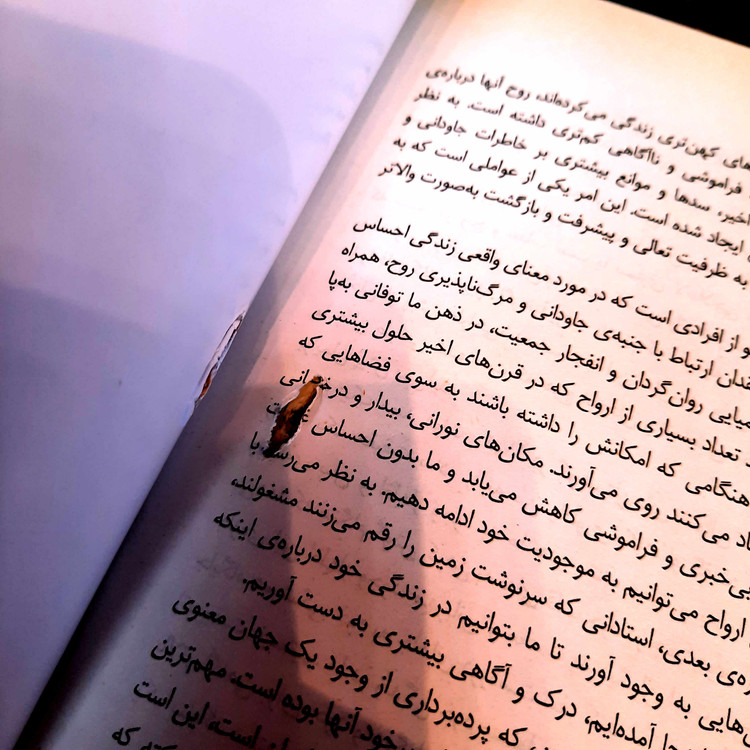 کهن‌تری زندگی می‌کرده‌اند، روح آنها درباره‌ی
فراموشی و ناآگاهی کم‌تری داشته است. به نظر
اخیر، سدها و موانع بیشتری بر خاطرات جاودانی و
ایجاد شده است. این امر یکی از عواملی است که به
به ظرفیت تعالی و پیشرفت و بازگشت به‌صورت والاتر
و از افرادی است که در مورد معنای واقعی زندگی احساس
ارتباط با جنبه‌ی جاودانی و مرگ‌ناپذیری روح، همراه
روان‌گردان و انفجار جمعیت، در ذهن ما توفانی به‌پا
تعداد بسیاری از ارواح که در قرن‌های اخیر حلول بیشتری
هنگامی که امکانش را داشته باشند به سوی فضاهایی که
می‌کنند روی می‌آورند. مکان‌های نورانی، بیدار و
بی‌خبری و فراموشی کاهش می‌یابد و ما بدون احساس
ارواح می‌توانیم به موجودیت خود ادامه دهیم. به نظر می‌رسد با
بعدی، استادانی که سرنوشت زمین را رقم می‌زنند مشغولند،
به وجود آورند تا ما بتوانیم در زندگی خود درباره‌ی اینکه
آمده‌ایم، درک و آگاهی بیشتری به دست آوریم.
که پرده‌برداری از وجود یک جهان معنوی
خود آنها بوده است. مهم‌ترین
است. این است
که